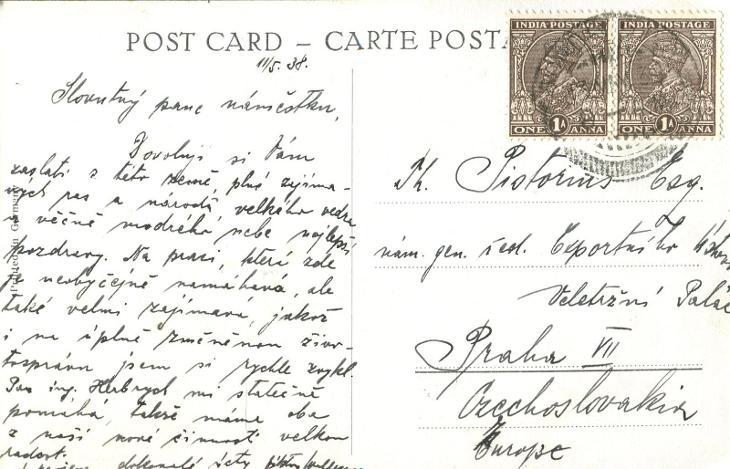 POST CARD – CARTE POSTA
INDIA POSTAGE
INDIA POSTAGE
ONE 1A ANNA
ONE 1A ANNA
11/5. 38.
Slovutný pane náměstku,
Dovoluji si Vám
zaslati z této země, plné zajíma-
vých ras a národů, velkého vedra
a věčně modrého nebe nejlepší
pozdravy. Na práci, která zde
je neobyčejně namáhavá, ale
také velmi zajímavá, jakož
i na úplně změněnou živo-
tosprávu jsem si rychle zvykl.
Pan ing. Herbrych mi statečně
pomáhá, takže máme oba
z naší nové činnosti velkou
radost.
dokonalé úcty
Th. Pistorius Esq.
nám. gen. řed. Exportního
Veletržní Palác
Praha VII
Czechoslovakia
Europe